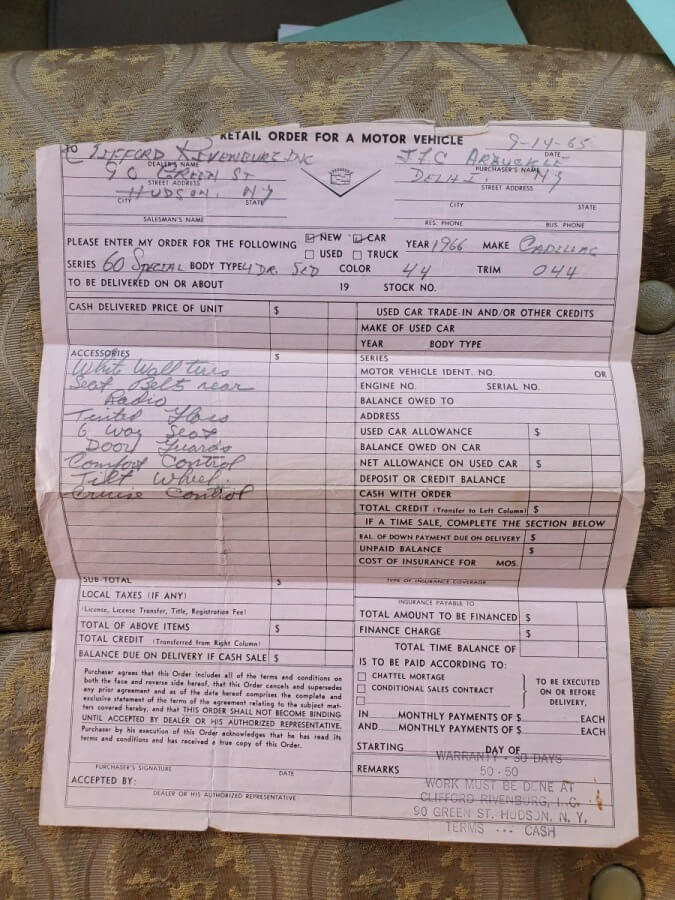 RETAIL ORDER FOR A MOTOR VEHICLE
9-14-65
DATE
TO CLIFFORD RIVENBURG INC
DEALER'S NAME
90 GREEN ST
STREET ADDRESS
HUDSON, NY
CITY STATE
SALESMAN'S NAME
ARBUCKLE
PURCHASER'S NAME
DELHI. NY
STREET ADDRESS
CITY STATE
RES. PHONE BUS. PHONE
PLEASE ENTER MY ORDER FOR THE FOLLOWING NEW CAR YEAR 1966 MAKE CADILLAC
USED TRUCK
SERIES 60 SPECIAL BODY TYPE 4 DR. SED COLOR 44 TRIM 044
TO BE DELIVERED ON OR ABOUT 19 STOCK NO.
CASH DELIVERED PRICE OF UNIT $
ACCESSORIES $
White Wall tires
Seat Belts rear
Radio
Tinted Glass
6 Way Seat
Door Guards
Comfort Control
Tilt Wheel.
Cruise Control
SUB-TOTAL $
LOCAL TAXES (IF ANY)
(License, License Transfer, Title, Registration Fee)
TOTAL OF ABOVE ITEMS $
TOTAL CREDIT (Transferred from Right Column)
BALANCE DUE ON DELIVERY IF CASH SALE $
Purchaser agrees that this Order includes all of the terms and conditions on
both the face and reverse side hereof, that this Order cancels and supersedes
any prior agreement and as of the date hereof comprises the complete and
exclusive statement of the terms of the agreement relating to the subject mat-
ters covered hereby, and that THIS ORDER SHALL NOT BECOME BINDING
UNTIL ACCEPTED BY DEALER OR HIS AUTHORIZED REPRESENTATIVE.
Purchaser by his execution of this Order acknowledges that he has read its
terms and conditions and has received a true copy of this Order.
PURCHASER'S SIGNATURE DATE
ACCEPTED BY:
DEALER OR HIS AUTHORIZED REPRESENTATIVE
USED CAR TRADE-IN AND/OR OTHER CREDITS
MAKE OF USED CAR
YEAR BODY TYPE
SERIES
MOTOR VEHICLE IDENT. NO. OR
ENGINE NO. SERIAL NO.
BALANCE OWED TO
ADDRESS
USED CAR ALLOWANCE $
BALANCE OWED ON CAR
NET ALLOWANCE ON USED CAR $
DEPOSIT OR CREDIT BALANCE
CASH WITH ORDER
TOTAL CREDIT (Transfer to Left Column) $
IF A TIME SALE, COMPLETE THE SECTION BELOW
BAL. OF DOWN PAYMENT DUE ON DELIVERY $
UNPAID BALANCE $
COST OF INSURANCE FOR MOS.
TYPE OF INSURANCE COVERAGE
INSURANCE PAYABLE TO
TOTAL AMOUNT TO BE FINANCED $
FINANCE CHARGE $
TOTAL TIME BALANCE OF
IS TO BE PAID ACCORDING TO:
CHATTEL MORTAGE
CONDITIONAL SALES CONTRACT
TO BE EXECUTED
ON OR BEFORE
DELIVERY,
IN MONTHLY PAYMENTS OF $ EACH
AND MONTHLY PAYMENTS OF $ EACH
STARTING DAY OF
WARRANTY - 30 DAYS
REMARKS 50-50
WORK MUST BE DONE AT
CLIFFORD RIVENBURG, I.C.
90 GREEN ST. HUDSON, N. Y.
TERMS --- CASH